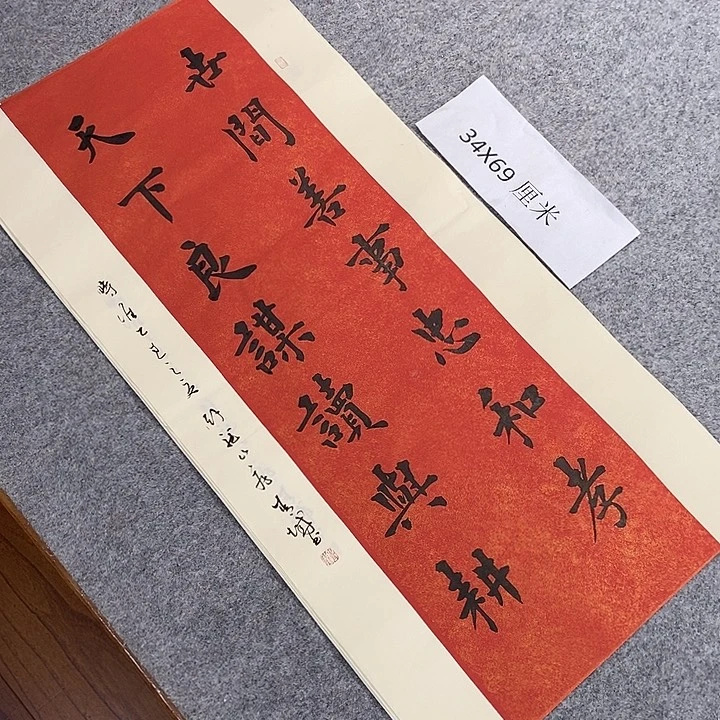 世間善事忠和孝
天下良謀讀與耕
時維乙巳之
34X69 厘米